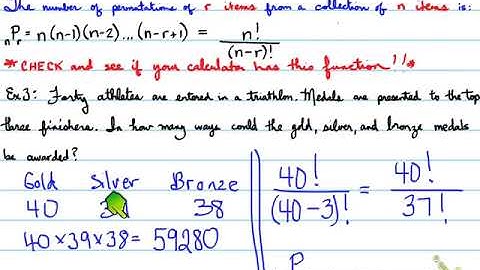 The number of permutations of r items from a collection of n items is:
nPr = n(n-1)(n-2)...(n-r+1) = n! / (n-r)!
*CHECK and see if your calculator has this function!!*
Ex3: Forty athletes are entered in a triathlon. Medals are presented to the top
three finishers. In how many ways could the gold, silver, and bronze medals
be awarded?
Gold Silver Bronze
40 39 38
40×39×38= 59280
40! / (40-3)! = 40! / 37!
P